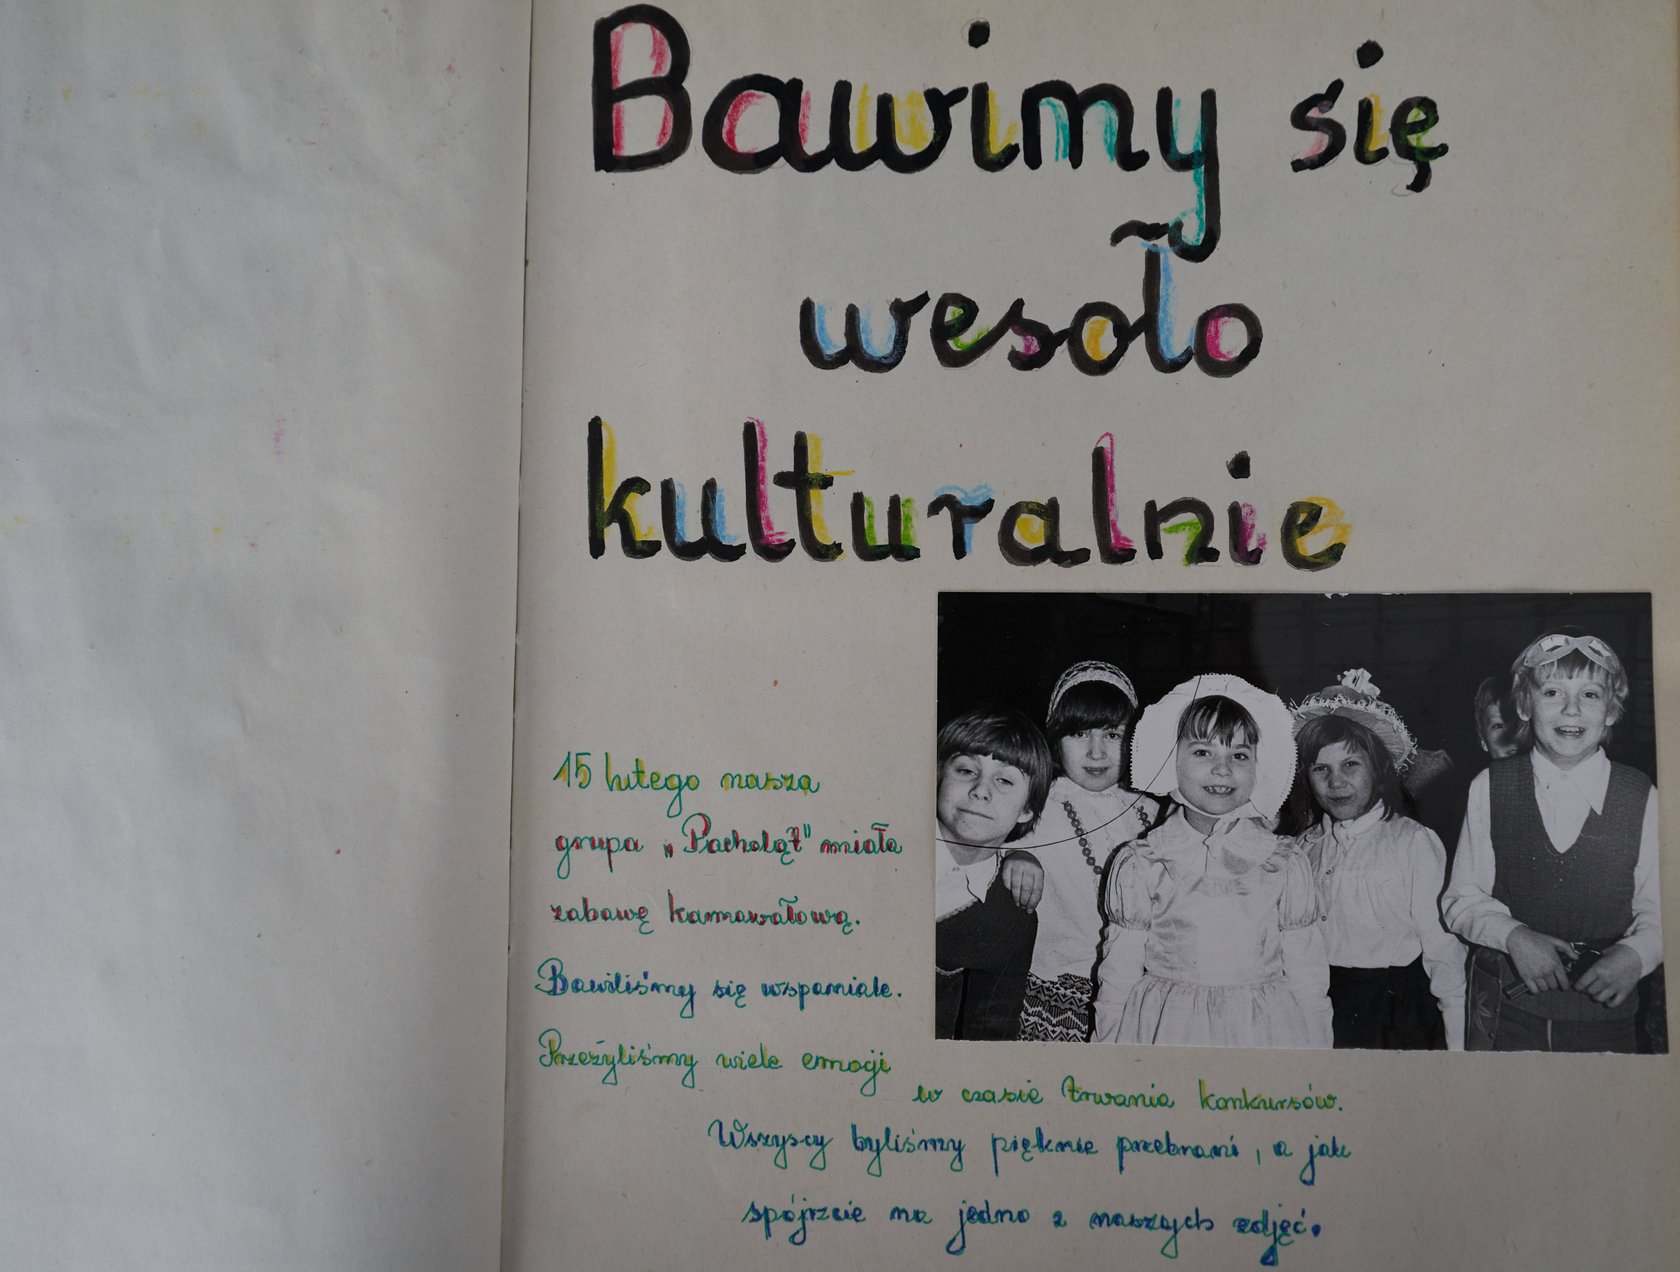 Bawimy się
wesoło
kulturalnie
15 lutego nasza
grupa „Pacholąt" miała
zabawę karnawałową.
Bawiliśmy się wspaniale.
Przeżyliśmy wiele emocji
w czasie trwania konkursów.
Wszyscy byliśmy pięknie przebrani, a jak
spójrzcie na jedno z naszych zdjęć.